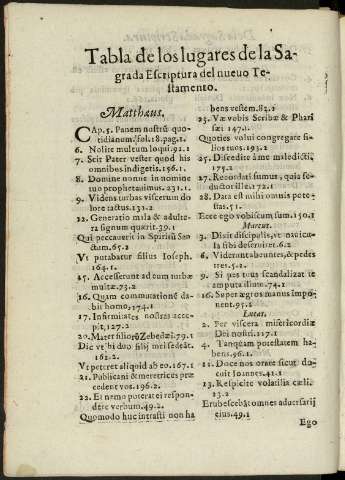 Tabla de los lugares de la Sa-
grada Escriptura del nuevo Te-
stamento.
Matthæus.
CAp. 5. Panem nostrũ quo-
tidianum. fol. 18. pag. 1.
6. Nolite multum loqui. 91.2
7. Scit Pater vester quod his
omnibus indigetis. 156.1
8. Domine nonne in nomine
tuo prophetauimus. 231.1.
9. Videns turbas viscerum do
lore tactus. 131.2
12. Generatio mala & adulte-
ra signum quærit. 39.1
Qui peccauerit in Spiritũ San
ctum. 65.2
Vt putabatur filius Ioseph.
164.1.
15. Accesserunt ad eum turbæ
multæ. 73.2
16. Quam commutationẽ da-
bit homo, 174.1
17. Infirmitates nostras acce-
pit, 127.2
20. Mater filiorũ Zebedæi. 79.1
Dic vt hi duo filij mei sedeãt.
162.2.
Vt petret aliquid ab eo. 167.1
21. Publicani & meretrices præ
cedent vos. 196.2.
22. Et nemo poterat ei respon-
dere verbum. 49.2.
Quomodo huc intrasti non ha
bens vestem. 82.1
23. Væ vobis Scribæ & Phari
sæi 147.1.
Quoties volui congregare fi-
lios tuos. 193.2
25. Discedite à me maledicti.
175.2
27. Recordati sumus, quia se-
ductor ille. 172.1
28. Data est mihi omnis pote-
stas. 51.
Ecce ego vobiscum sum. 150.1
Marcus.
3. Dixit discipulis, vt nauicu-
la sibi deseruiret. 6.2
6. Viderunt abeuntes, & pedes
tres. 5.2.
9. Si pes tuus scandalizat te
amputa illum. 74.1
16. Super ægros manus impo-
nent. 95.1
Lucas.
2. Per viscera misericordiæ
Dei nostri. 117.1
4. Tanquam potestatem ha-
bens. 96.1
11. Doce nos orare sicut do-
cuit Ioannes. 41.1
13. Respicite volatilia cæli.
23.2
Erubescebãt omnes aduersarij
eius. 49.1
Ego